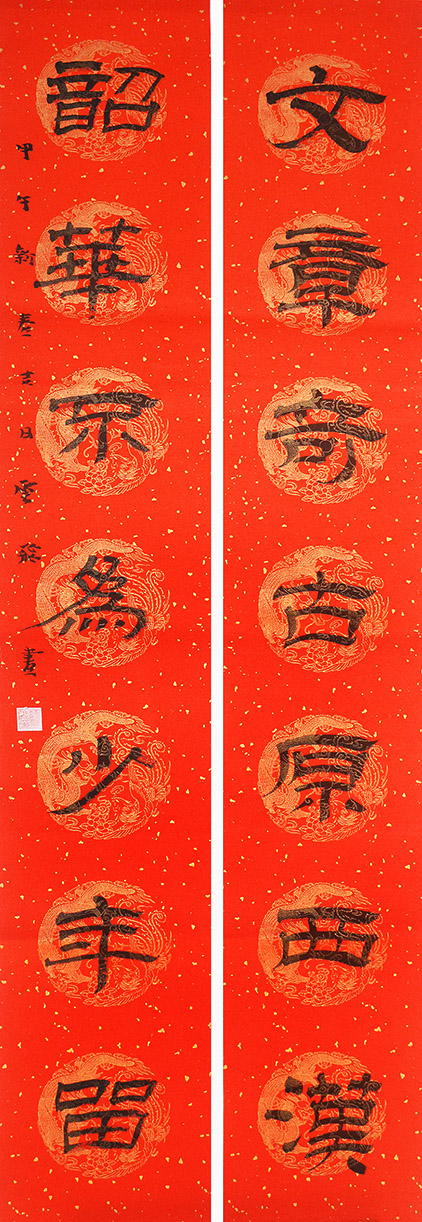 文章奇古原西漢
韶華不為少年留
甲午新春吉日雲書